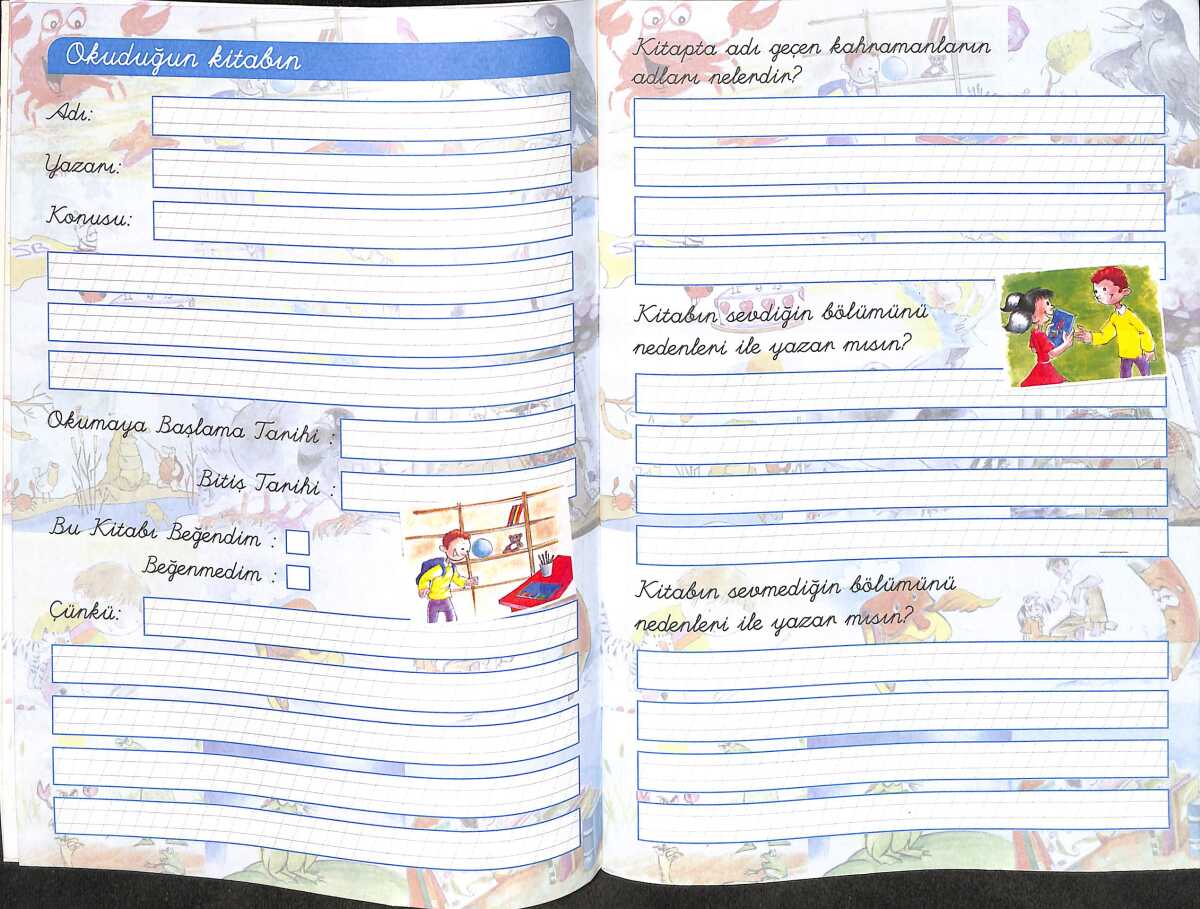 Okuduğun kitabın
Adı:
Yazarı:
Konusu:
Okumaya Başlama Tarihi :
Bitiş Tarihi :
Bu Kitabı Beğendim :
Beğenmedim :
Çünkü:
Kitapta adı geçen kahramanların
adları nelerdir?
Kitabın sevdiğin bölümünü
nedenleri ile yazar mısın?
Kitabın sevmediğin bölümünü
nedenleri ile yazar mısın?